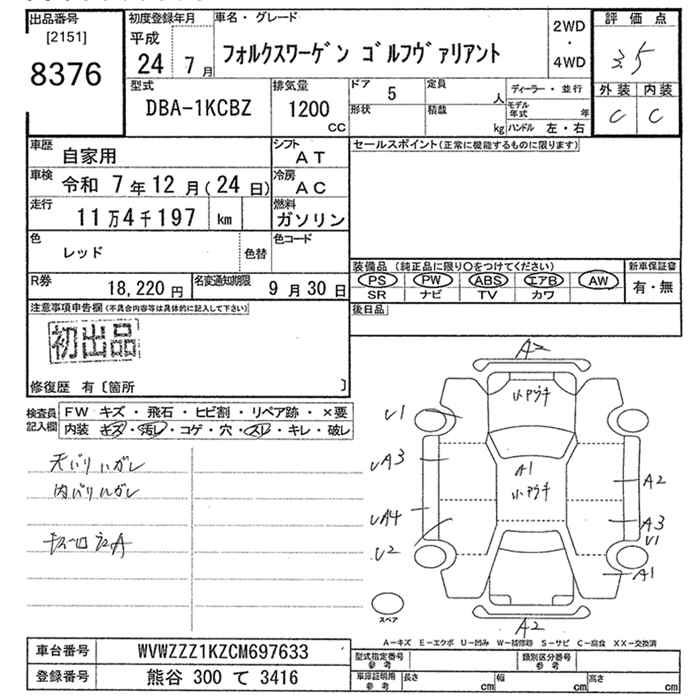 出品番号
[2151]
8376
初度登録年月
平成
24 7 月
車名・グレード
フォルクスワーゲン ゴルフヴァリアント
2WD
・
4WD
評価点
3.5
外装 内装
C C
型式
DBA-1KCBZ
排気量
1200
CC
ドア 5
定員 人
形状
積載 kg
ディーラー・並行
モデル年式 年
ハンドル 左・右
車歴 自家用
シフト AT
車検 令和 7 年 12 月(24 日)
冷房 AC
走行 11 万 4 千 197 km
燃料 ガソリン
色 レッド
色替
色コード
R券 18,220 円
名変通知期限 9 月 30 日
セールスポイント(正常に機能するものに限ります)
装備品 (純正品に限り○をつけてください)
PS PW ABS エアB AW
SR ナビ TV カワ
新車保証書
有・無
後日品
注意事項申告欄(不具合内容等は具体的に記入して下さい)
初出品
修復歴 有〔箇所 〕
検査員記入欄
FW キズ・飛石・ヒビ割・リペア跡・×要
内装 キズ・汚レ・コゲ・穴・スレ・キレ・破レ
天バリハガレ
内バリハガレ
A2
小アヅキ
U1
UA3
A1
小アヅキ
A2
UA4
A3
U1
U2
A1
A2
スペア
A-キズ E-エクボ U-凹み W-補修跡 S-サビ C-腐食 XX-交換済
車台番号 WVWZZZ1KZCM697633
登録番号 熊谷 300 て 3416
型式指定番号 参考
類別区分番号 参考
車庫証明用 参考
長さ cm
幅 cm
高さ cm